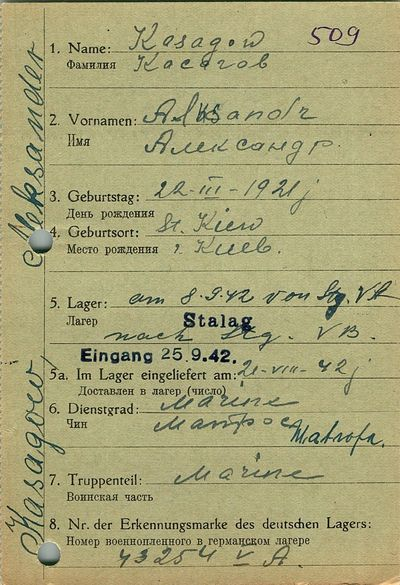 509
1. Name: Kasagow
Фамилия Касагов
2. Vornamen: Aleksandr
Имя Александр.
3. Geburtstag: 22-III-1921j
День рождения
4. Geburtsort: St. Kiew
Место рождения г. Киев.
5. Lager: am 8.9.42 von Stg. VA
Лагер nach Stg. VB.
Stalag
Eingang 25.9.42.
5a. Im Lager eingeliefert am: 21-VIII-42j
Доставлен в лагер (число)
6. Dienstgrad: Marine
Чин Матрос
7. Truppenteil: Marine
Воинская часть
8. Nr. der Erkennungsmarke des deutschen Lagers:
Номер военнопленного в германском лагере
43254 V A.
Kasagow, Aleksander